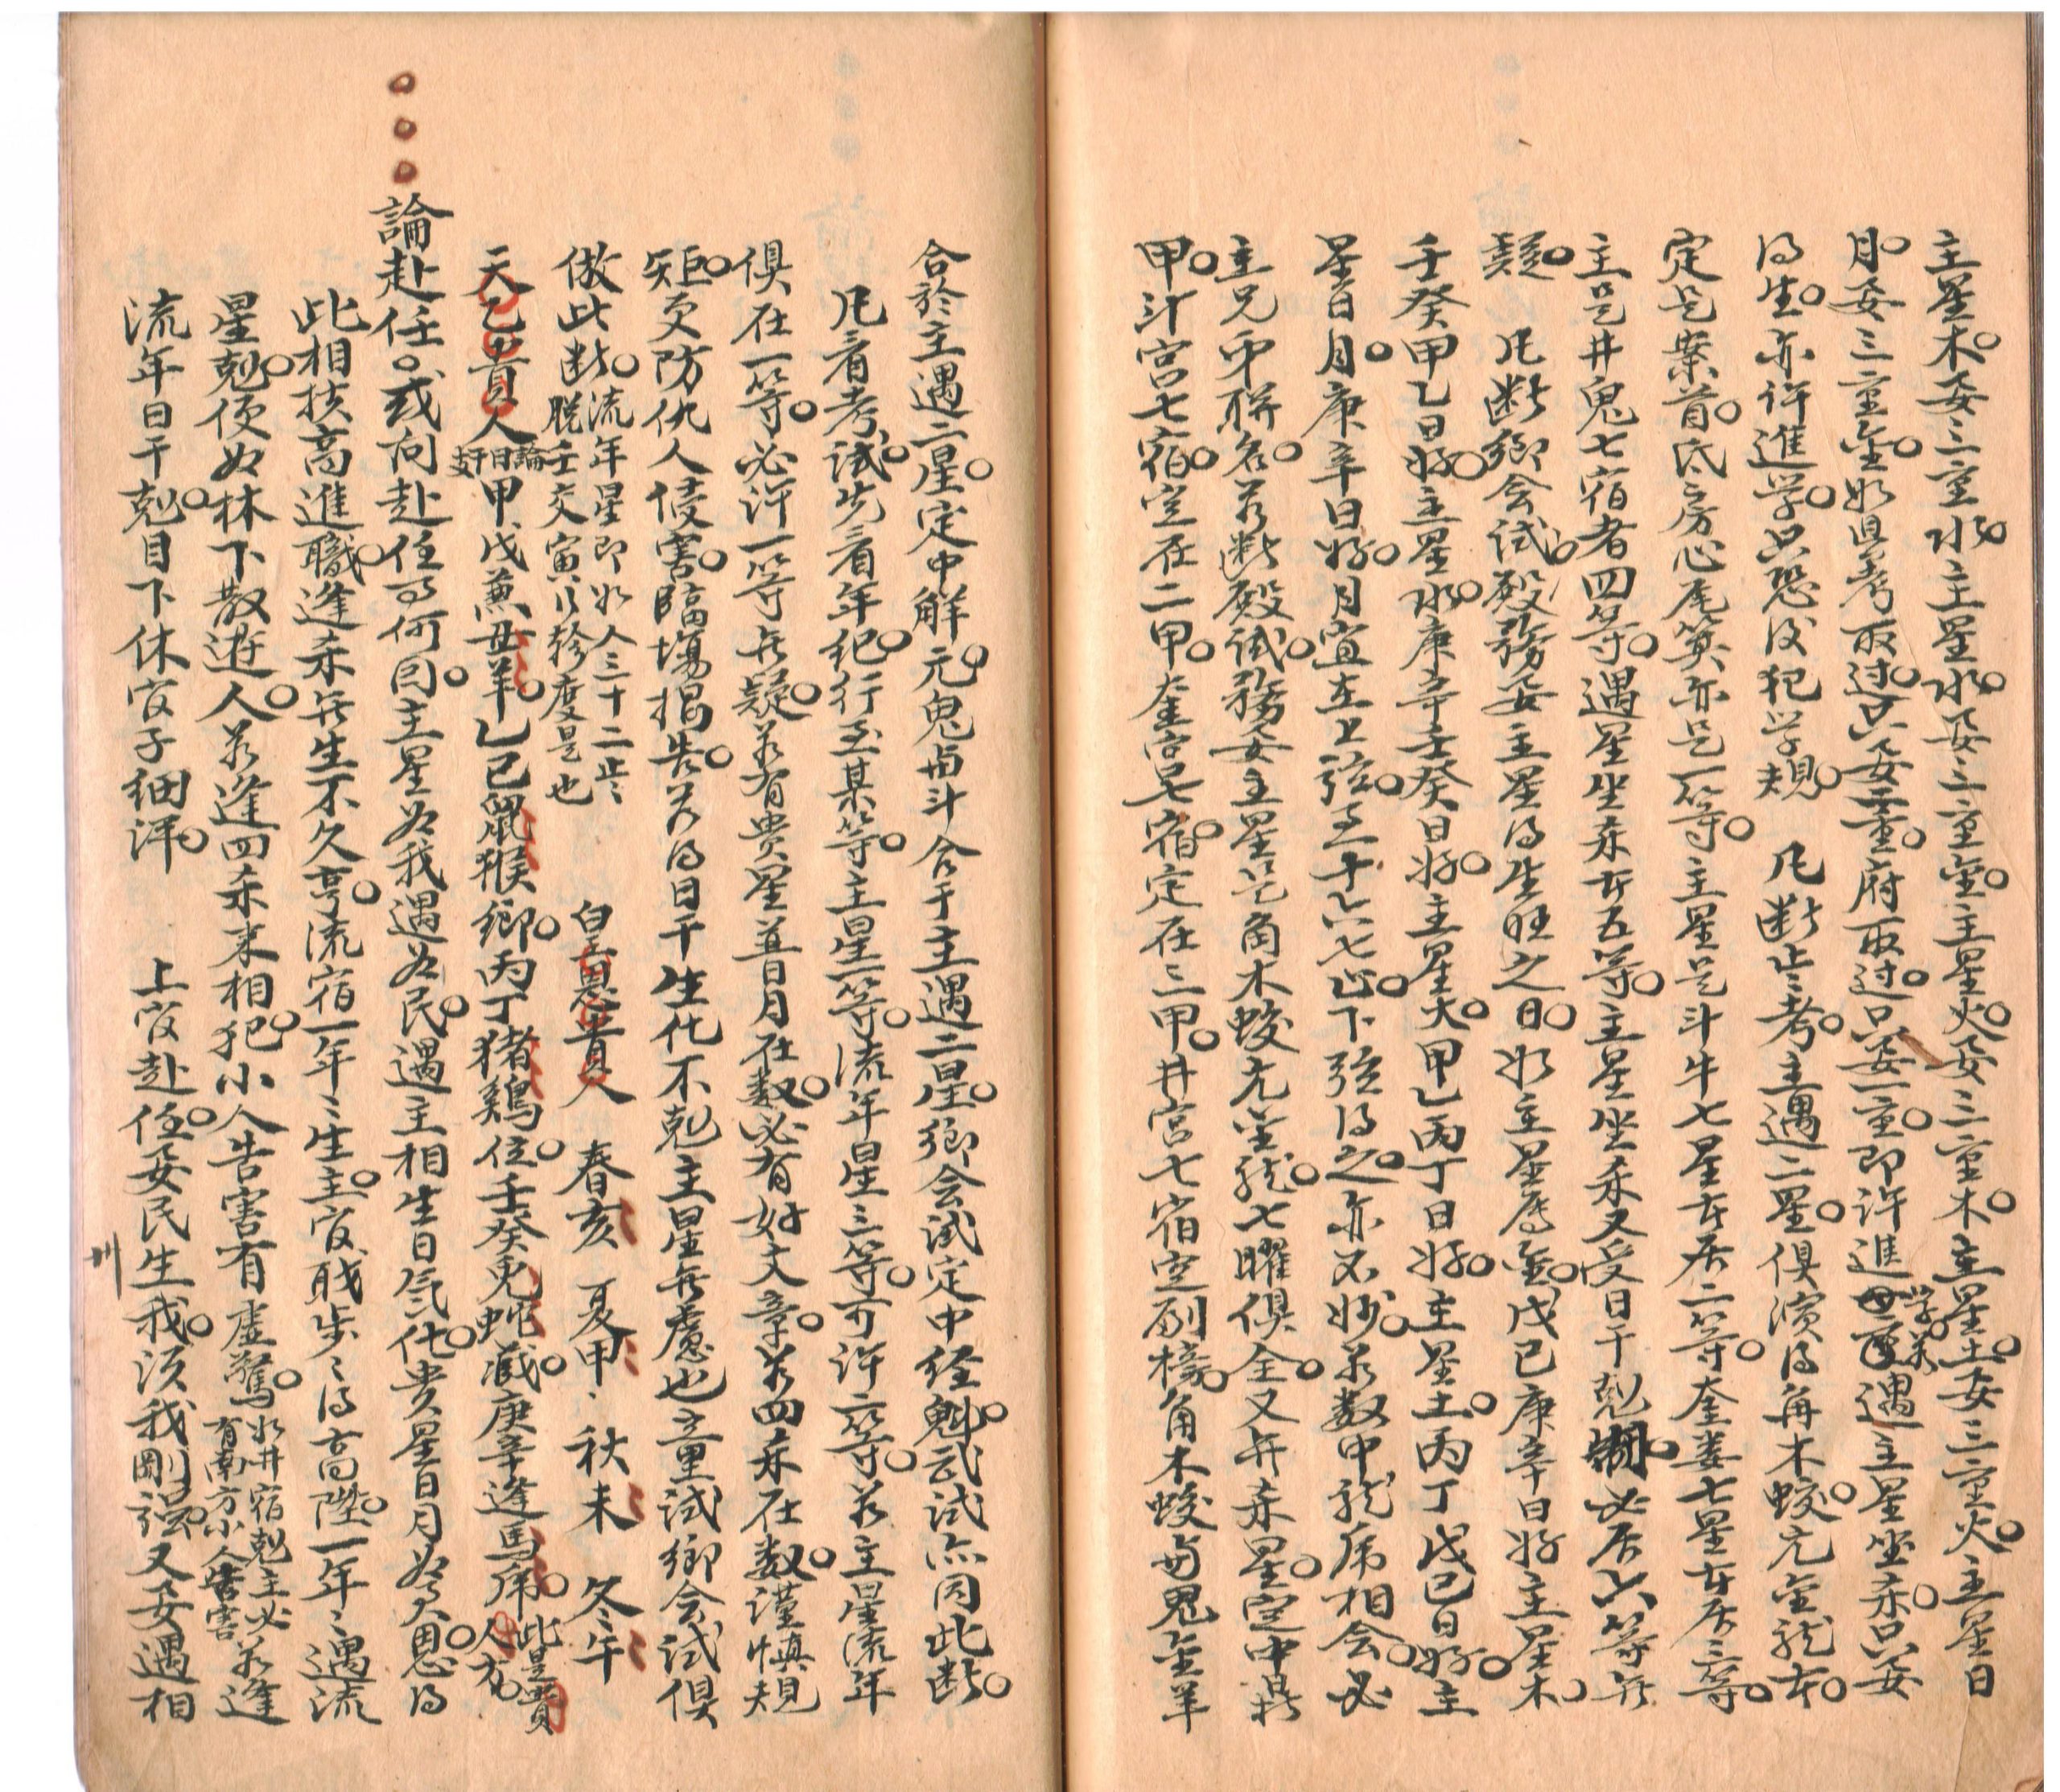 主星木。妄三重水。主星水。妄三重金。主星火。妄三重木。主星土。妄三重火。主星日
月。妄三重金。如县考取过。只妄二重。府取过。只妄一重。即许進学。若遇主星坐杀。只妄
得生。亦许進学。只恐後犯学規。凡断岁考。主遇二星。俱演得角木蛟。亢金龙。本
定是案首。氐房心尾箕亦是一等。主星是斗牛七星本居二等。奎娄七星本居三等。
主是井鬼七宿者四等。遇星坐杀本五等。主星坐杀又受日干剋制。必居六等無
疑。凡断鄉会試。殿務妄主星得生旺之日。如主星属金。戊己庚辛日好。主星木。
壬癸甲乙日好。主星水。庚辛壬癸日好。主星火。甲乙丙丁日好。主星土。丙丁戊己日好。主
星日月。庚辛日好。月宜在上弦。至十六七止。下弦得之。亦不妙。若数中龙虎相会。必
主兄弟联名。若断殿試。務妄主星是角木蛟亢金龙。七曜俱全。又無杀星。定中鼎
甲。斗宫七宿。定在二甲。奎宫七宿。定在三甲。井宫七宿定副榜。角木蛟与鬼金羊
合於主遇二星。定中解元。鬼与斗合于主遇二星。鄉会試定中经魁。武試亦同此断。
凡看考試。先看年犯。行至某等。主星一等。流年星三等。可许二等。若主星流年
俱在一等。必许一等無疑。若有贵星並日月在数。必有好文章。若四杀在数。谨慎規
矩。更防仇人侵害。臨場揭告。若得日干生化不剋主星無慮也。童試鄉会試俱
倣此断。流年星即如人三十二岁脱壬交寅以轸度是也 皇恩貴人 春亥 夏甲 秋未 冬午
天乙貴人論日干支甲戊兼丑羊。乙己鼠猴鄉。丙丁猪鷄位。壬癸兔蛇藏。庚辛逢馬虎。此是貴人方。
論赴任。或问赴任事何因。主星为我遇为民。遇主相生日气化。贵星日月为天恩。得
此相扶高進職。逢杀無生不久亨。流宿一年年生主。官职步步得高陞。一年年遇流
星剋。便为林下散遊人。若逢四杀来相犯。小人告害有虛驚。如井宿剋主必有南方小人告害 若逢
流年日干剋。目下休官子细详。 上官赴任。妄民生我。须我剛强。又妄遇相